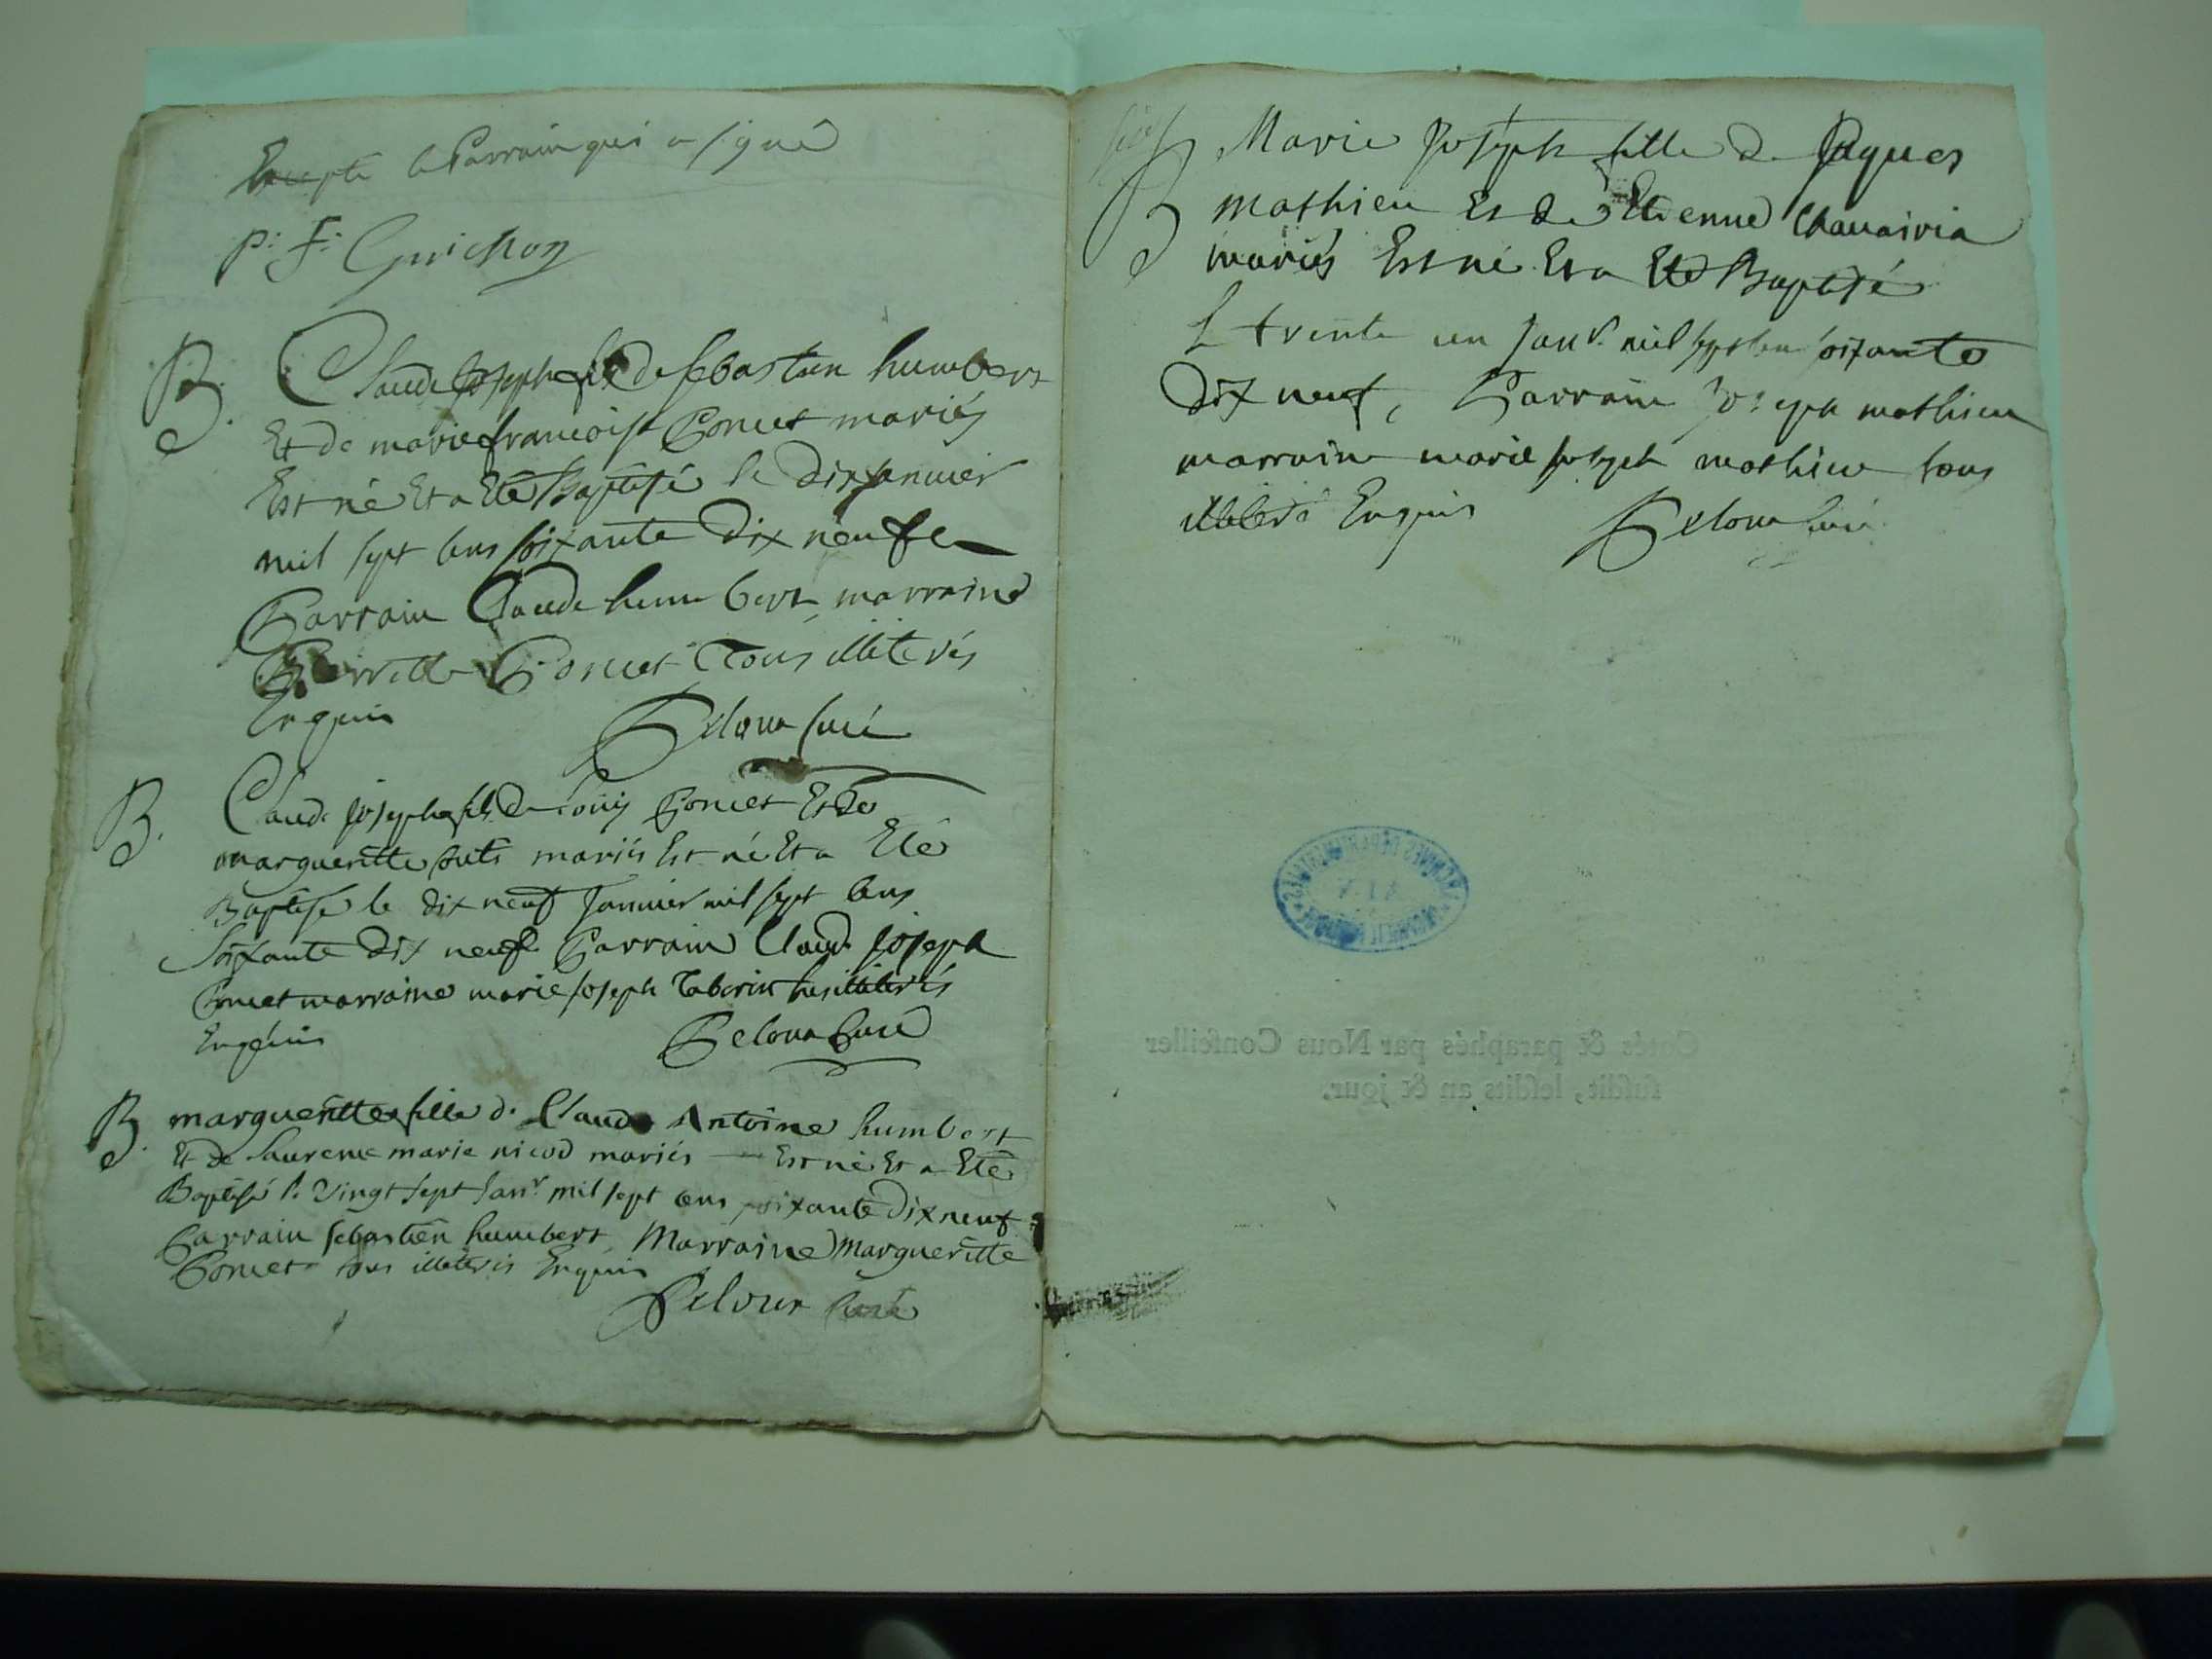 Excepté le Parrain qui a signé
p: f: Guichon
B. Claude Joseph fils de sebastien humbert
Et de marie françoise Poncet mariés
Est né Et a Eté Baptisé le dix janvier
mil sept cens soixante dix neuf
Parrain Claude humbert marraine
Pierrette Poncet Tous illiterés
Enquis Peloux Curé
B. Claude joseph fils de Louis Poncet Et de
margueritte mariés Est né Et a Eté
Baptisé le dix neuf Janvier mil sept cens
soixante dix neuf Parrain Claude joseph
Poncet marraine marie joseph Taborin tous illiterés
Enquis Peloux Curé
B. margueritte fille de Claude Antoine humbert
Et de Laurence marie nicod mariés Est né Et a Eté
Baptisé le vingt sept janr. mil sept cens soixante dix neuf
Parrain sebastien humbert, Marraine Margueritte
Poncet tous illiterés Enquis
Peloux Curé
B Marie Joseph fille de Jaques
mathieu Et de Etienne Chauaivia
mariés Est né Et a Eté Baptisé
Le trente un janr. mil sept cens soixante
dix neuf, Parrain Joseph mathieu
marraine marie joseph mathieu tous
illiteré Enquis Peloux Curé
Cotés & paraphés par Nous Conseiller
susdit, lesdits an & jour.